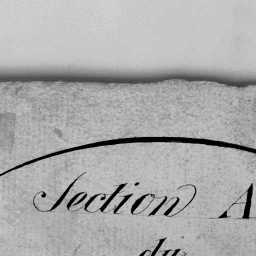 Section A
du